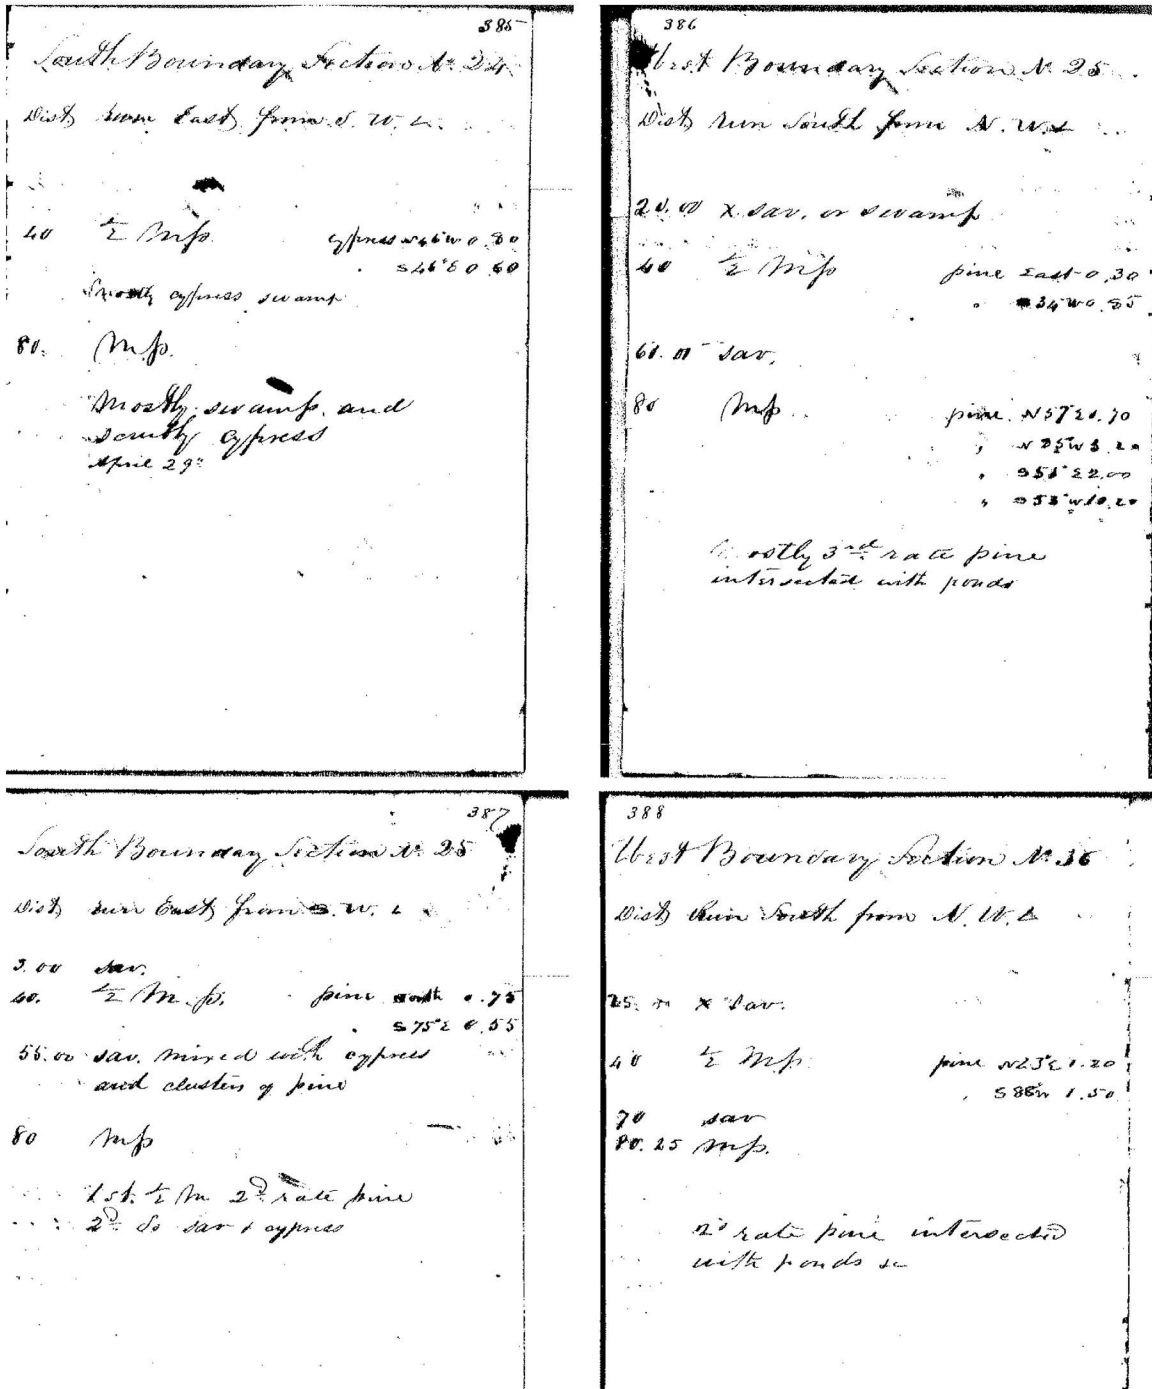 385
South Boundary Section No 24
Dist run East from S. W. L.
40 ½ M.p. cypress N46W 0.80
S46°E 0.60
Mostly cypress swamp
80. M.p.
Mostly swamp and
cypress
April 29th
386
West Boundary Section No 25
Dist run South from N. W. L
20.00 x sav. or swamp
40 ½ M.p pine East 0.30
34°W 0.85
60.00 sav.
80 M.p. pine N57°E 0.70
" S53°W 10.20
ostly 3rd rate pine
intersected with ponds
387
South Boundary Section No 25
Dist run East from S. W. L
3.00 sav.
40. ½ M.p. pine 0.75
S75°E 0.55
55.00 sav. mixed with cypress
and clusters of pine
80 M.p
1st ½ M 2d rate pine
2d do sav & cypress
388
West Boundary Section No 36
Dist run South from N. W. L
25. x sav.
40 ½ M.p. pine N23°E 1.20
S88W 1.50
70 sav
80.25 M.p.
2d rate pine intersected
with ponds &c